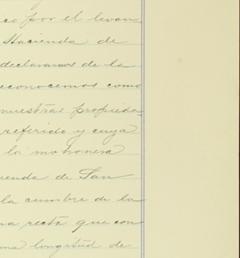 co por el levan
Hacienda de
declaramos de la
econocemos como
nuestras propieda
referido y cuya
la mohonera
ienda de San
la cumbre de la
na recta que con
una longitud de